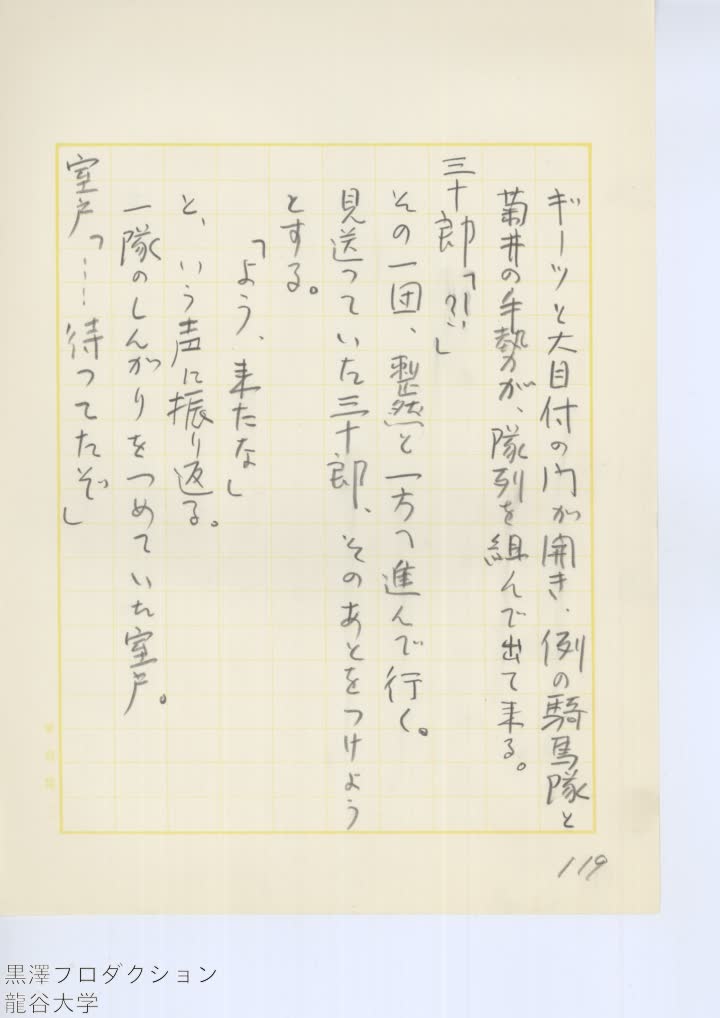 ギーツと大目付の門が開き、例の騎馬隊と
菊井の手勢が、隊列を組んで出て来る。
三十郎「?!…」
その一団、整然と一方へ進んで行く。
見送つていた三十郎、そのあとをつけよう
とする。
「よう、来たな」
と、いう声に振り返る。
一隊のしんがりをつめていた室戸。
室戸「……待つてたぞ」
119
黒澤プロダクション
龍谷大学